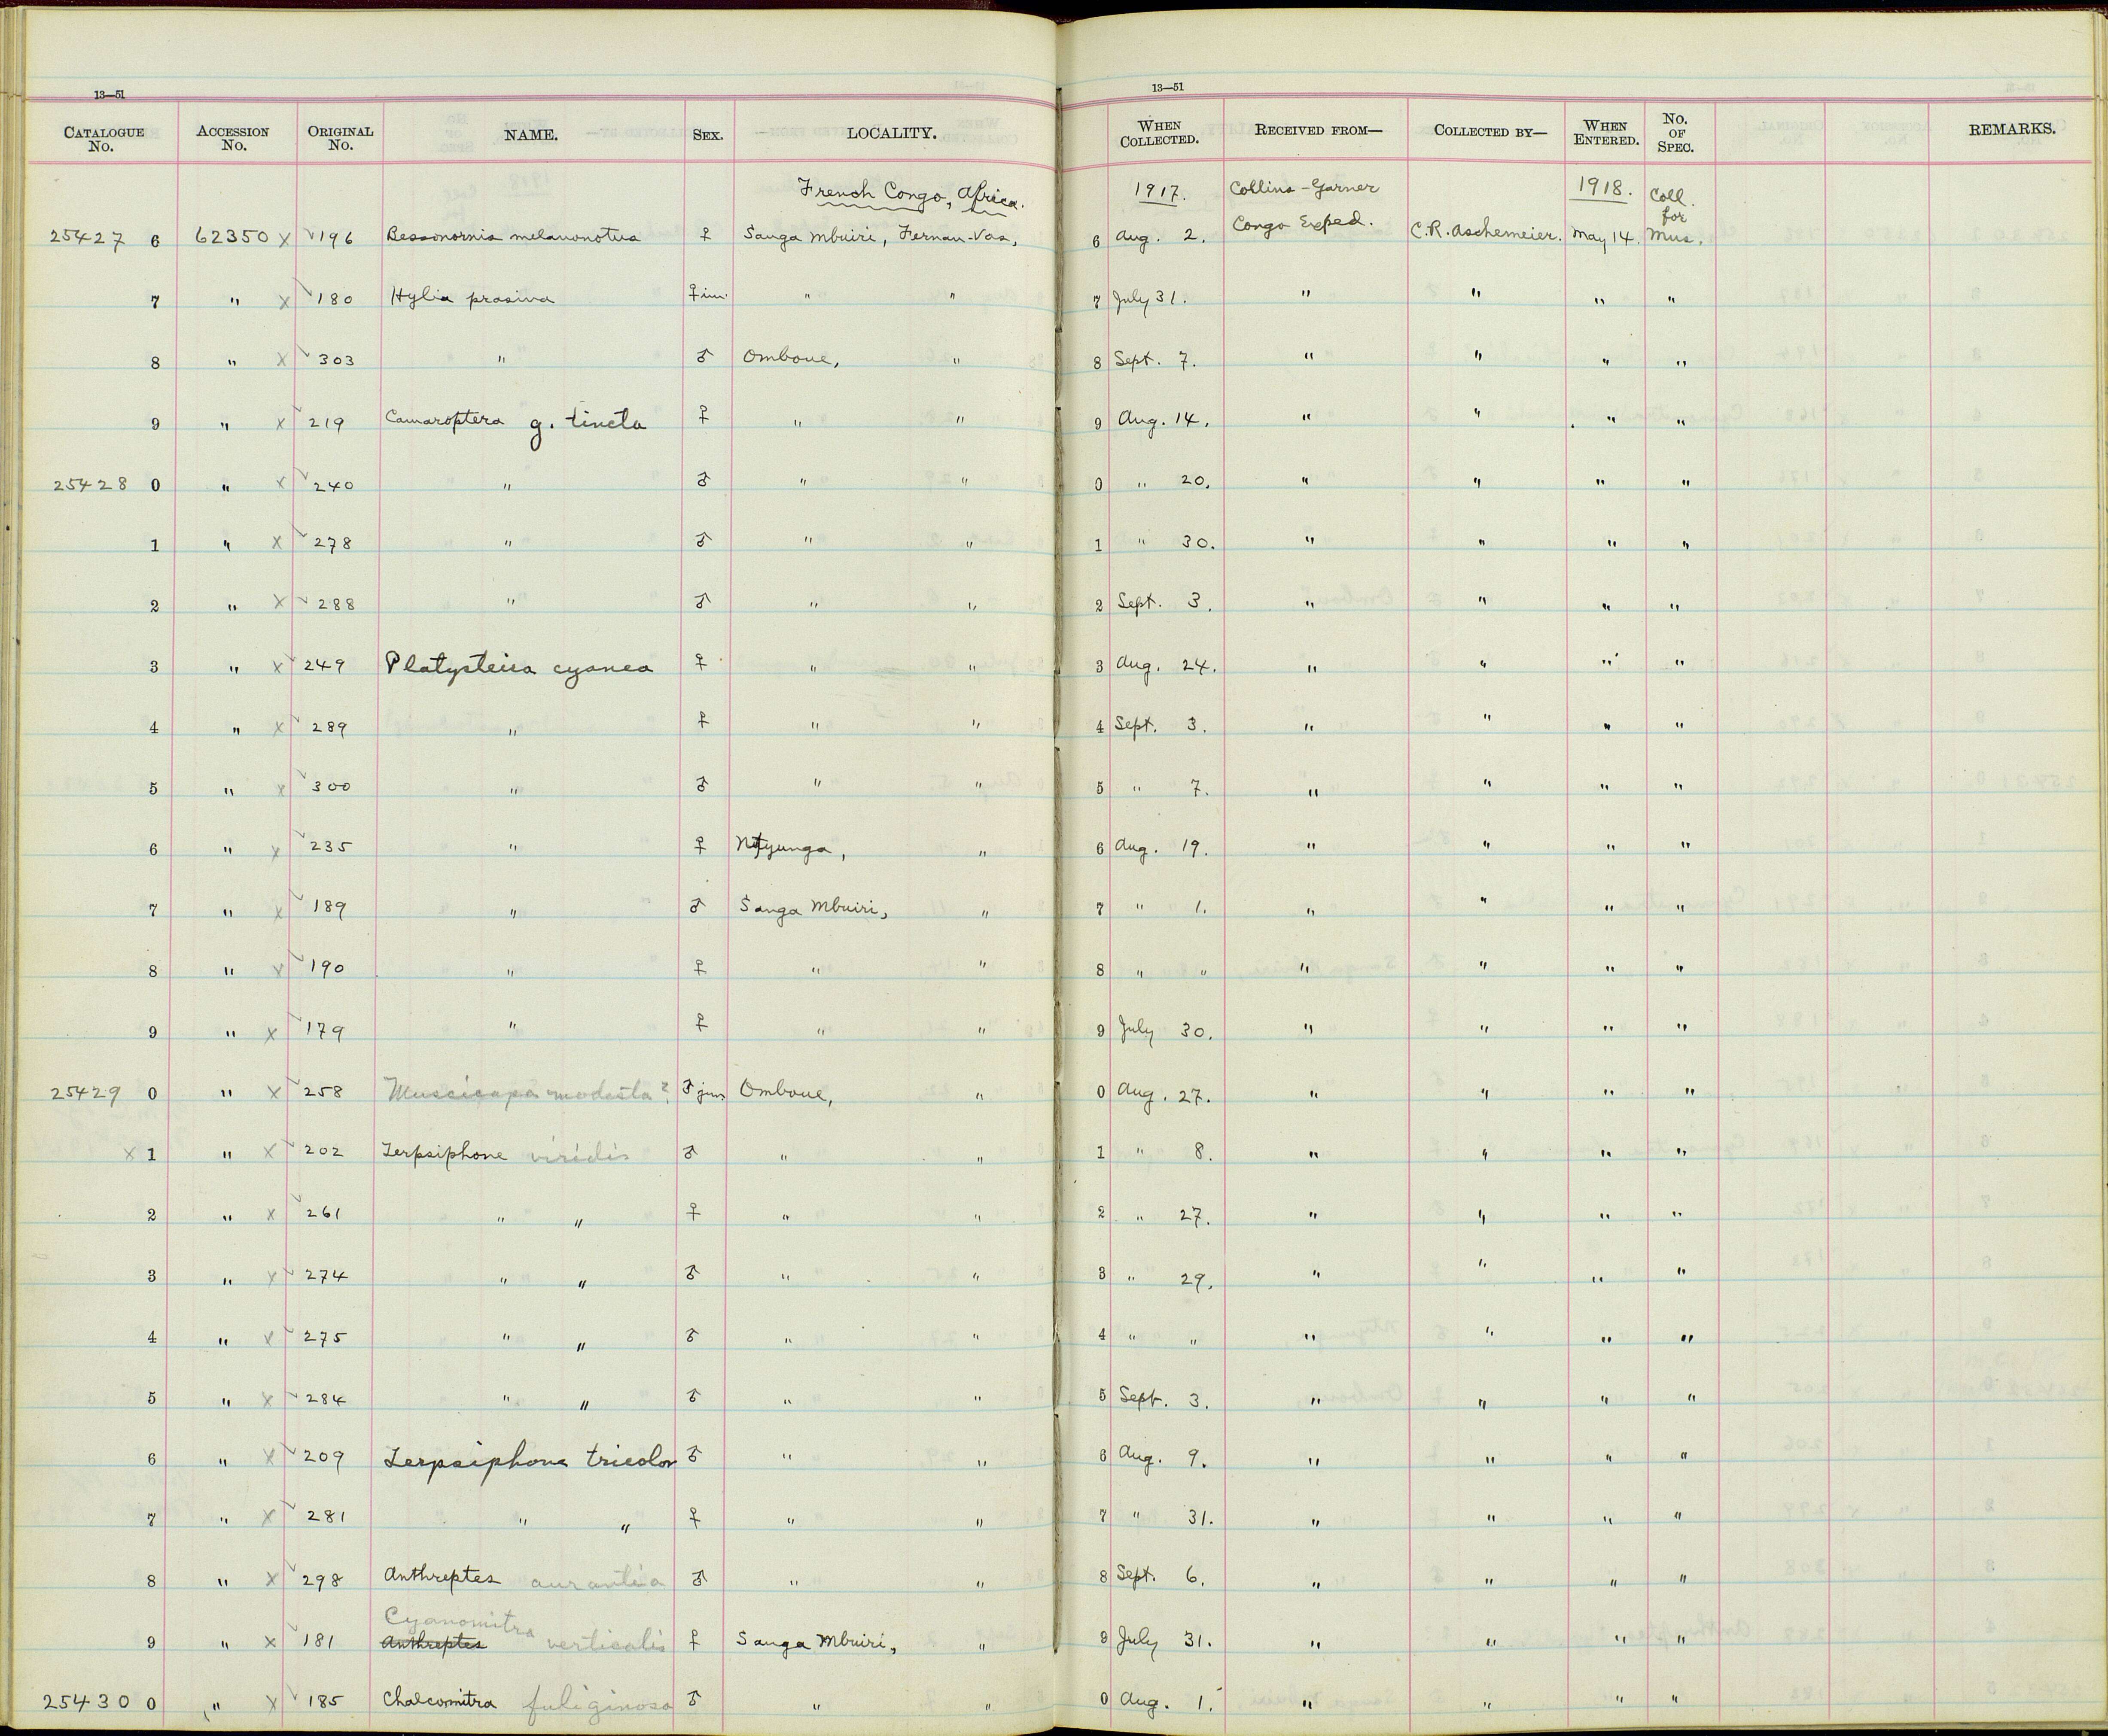 13—51
CATALOGUE No. ACCESSION No. ORIGINAL No. NAME. SEX. LOCALITY.
French Congo, Africa.
25427 6 62350 X ✓196 Bessonornis melanonotus ♀ Sanga Mbuiri, Fernan-Vas,
7 " X ✓180 Hylia prasina ♀ im. " "
8 " X ✓303 " ♂ Omboue, "
9 " X ✓219 Camaroptera g. tincta ♀ " "
25428 0 " X ✓240 " ♂ " "
1 " X ✓278 " ♂ " "
2 " X ✓288 " ♂ " "
3 " X ✓249 Platysteira cyanea ♀ " "
4 " X ✓289 " ♀ " "
5 " X ✓300 " ♂ " "
6 " X ✓235 " ♀ Ntyunga, "
7 " X ✓189 " ♂ Sanga Mbuiri, "
8 " X ✓190 " ♀ " "
9 " X ✓179 " ♀ " "
25429 0 " X ✓258 Muscicapa modesta? ♂ juv. Omboue, "
X 1 " X ✓202 Terpsiphone viridis ♂ " "
2 " X ✓261 " " ♀ " "
3 " X ✓274 " " ♂ " "
4 " X ✓275 " " ♂ " "
5 " X ✓284 " " ♂ " "
6 " X ✓209 Terpsiphone tricolor ♂ " "
7 " X ✓281 " " ♀ " "
8 " X ✓298 Anthreptes aurantia ♂ " "
Cyanomitra
9 " X ✓181 Anthreptes verticalis ♀ Sanga Mbuiri, "
25430 0 " X ✓185 Chalcomitra fuliginosa ♂ " "
13—51
WHEN COLLECTED. RECEIVED FROM— COLLECTED BY— WHEN ENTERED. No. OF SPEC. REMARKS.
1917. Collins-Garner 1918. Coll. for
6 Aug. 2. Congo Exped. C.R. Aschemeier. May 14. Mus.
7 July 31. " " " "
8 Sept. 7. " " " "
9 Aug. 14. " " " "
0 " 20. " " " "
1 " 30. " " " "
2 Sept. 3. " " " "
3 Aug. 24. " " " "
4 Sept. 3. " " " "
5 " 7. " " " "
6 Aug. 19. " " " "
7 " 1. " " " "
8 " " " " " "
9 July 30. " " " "
0 Aug. 27. " " " "
1 " 8. " " " "
2 " 27. " " " "
3 " 29. " " " "
4 " " " " " "
5 Sept. 3. " " " "
6 Aug. 9. " " " "
7 " 31. " " " "
8 Sept. 6. " " " "
9 July 31. " " " "
0 Aug. 1. " " " "